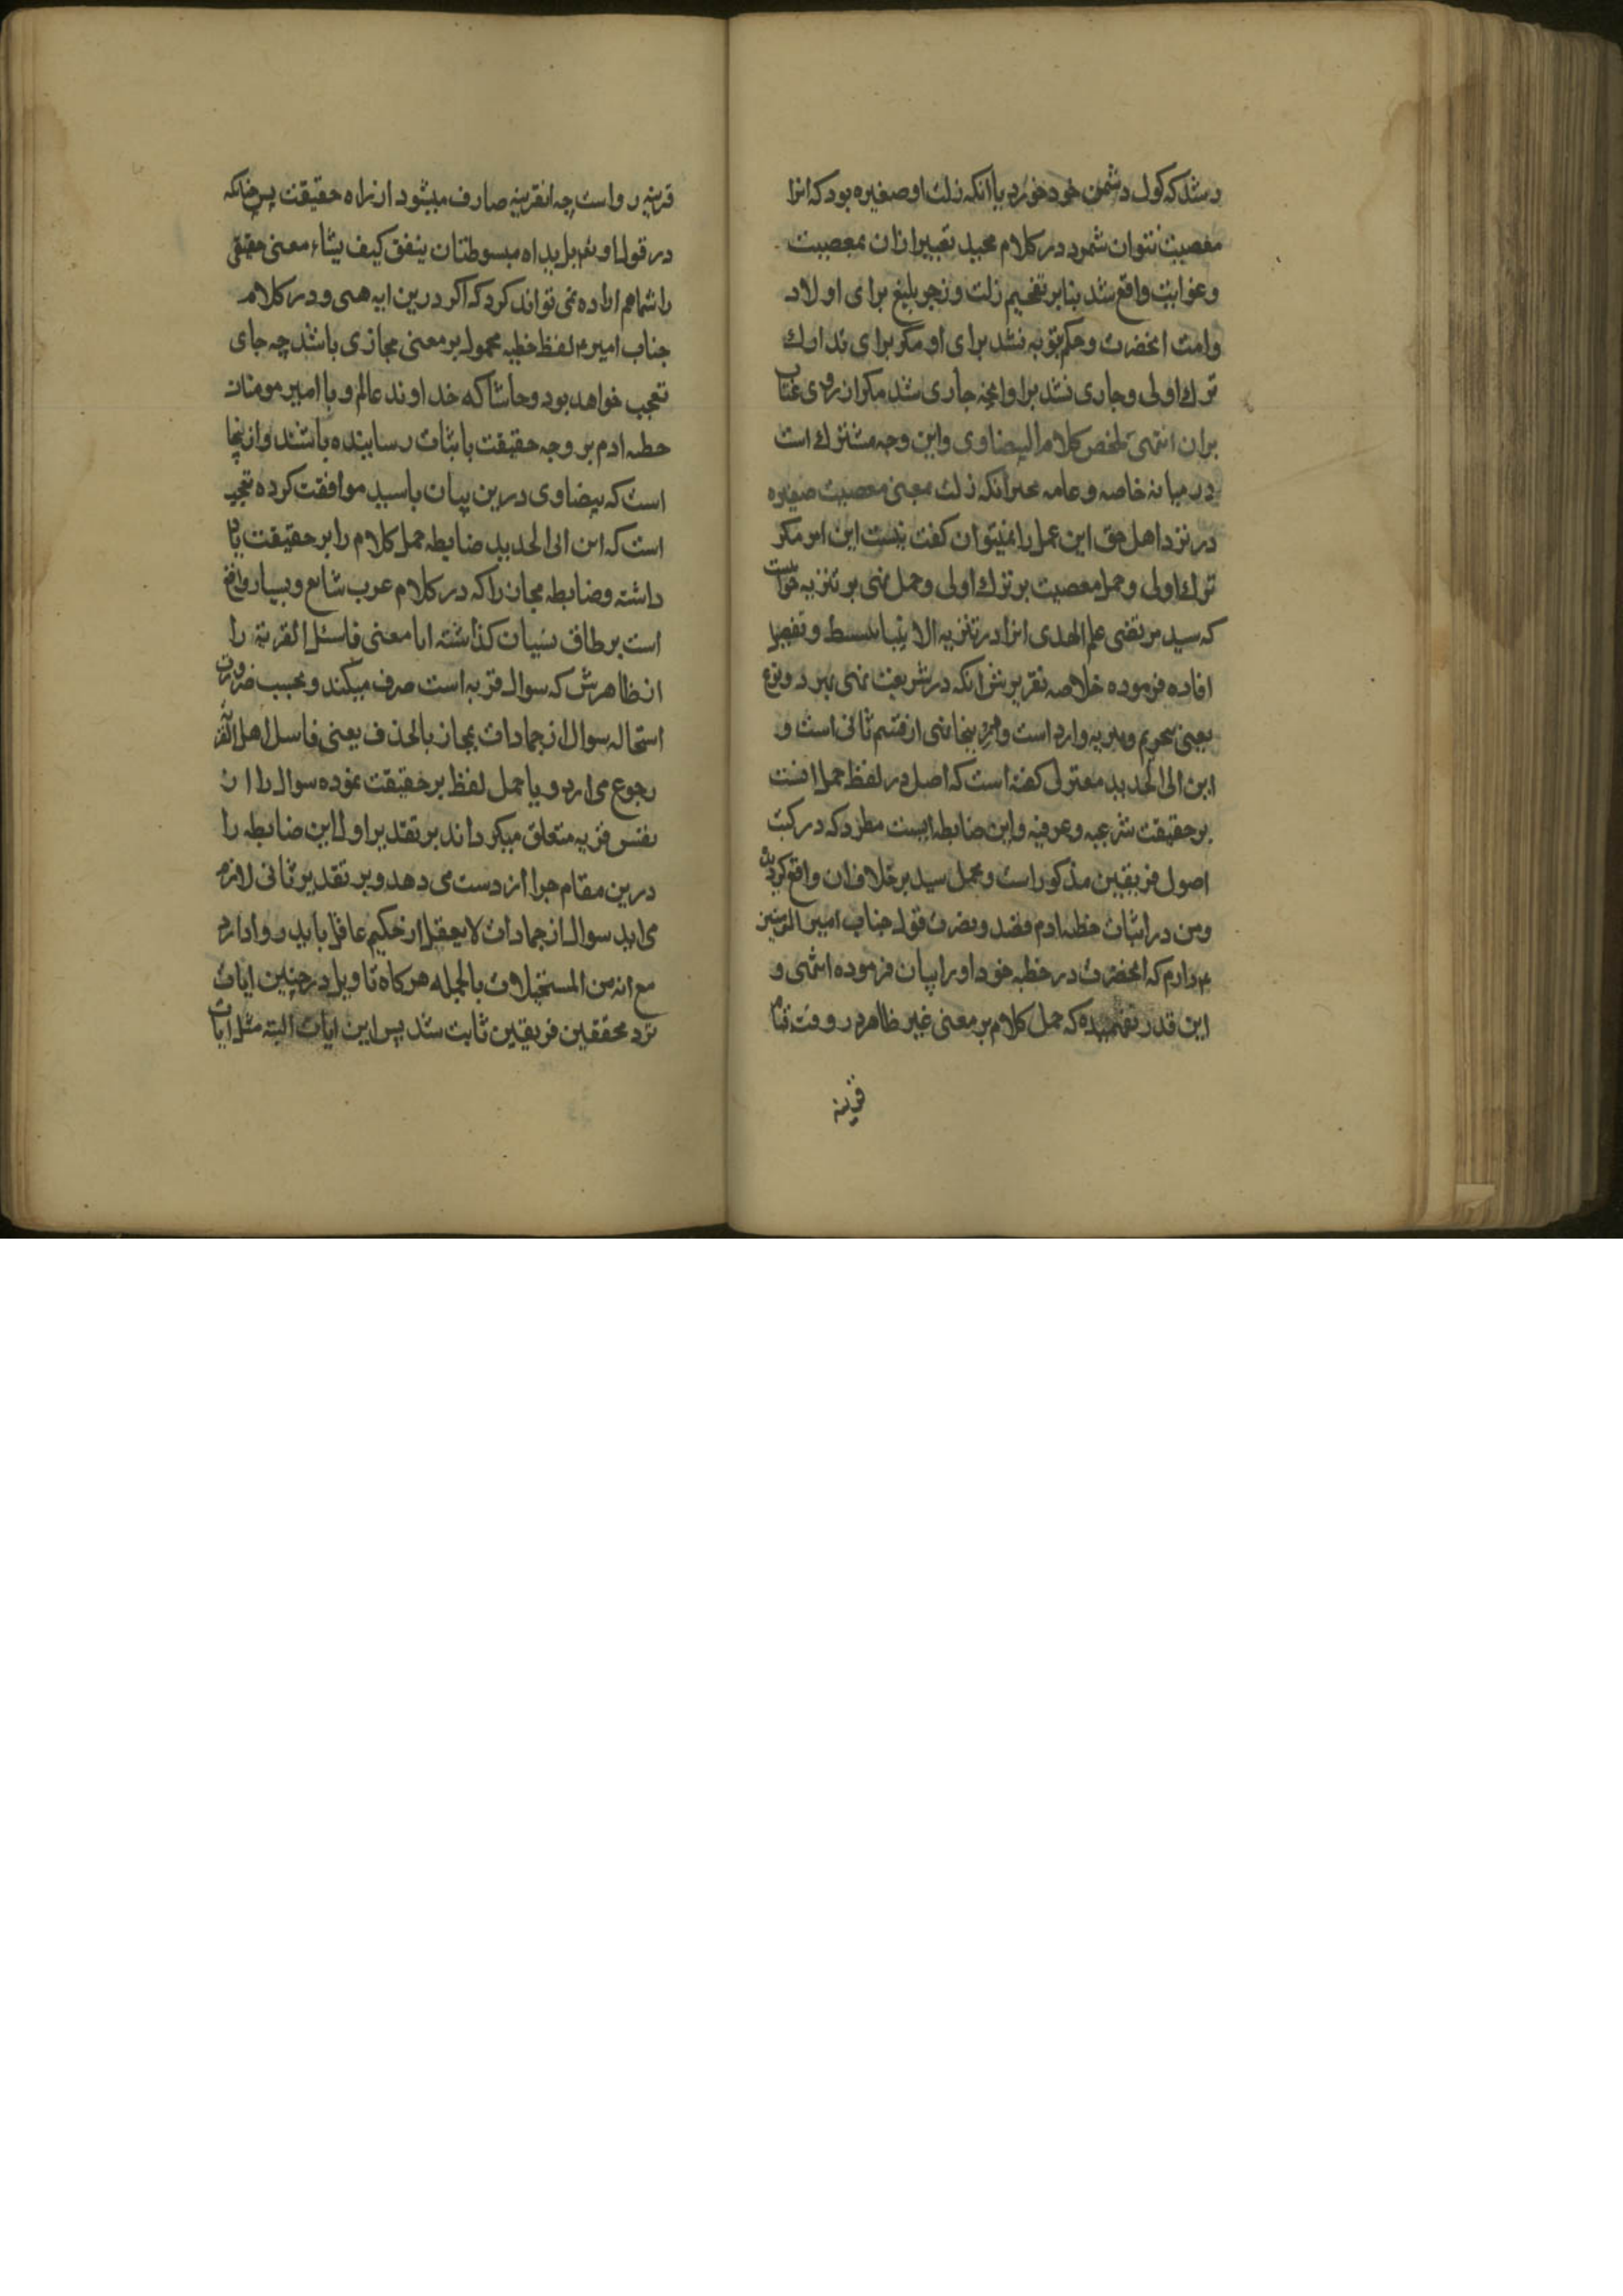 رشد که کول دشمن خود خورد با انکه زلت او صغیره بود که انرا
معصیت نتوان شمرد در کلام مجید تعبیر ازان بمعصیت
و غوایت واقع شد بنابر تفخیم زلت و زجر بلیغ برای اولاد
وامت انحضرت و حکم بتوبه نشد برای او مکر برای تدارک
ترک اولی و جاری نشد برا و انچه جاری شد مکر از روی عتاب
بران انتهی ملخص کلام البیضاوی واین وجه مشترک است
در میانه خاصه و عامه غیر انکه زلت بمعنی معصیت صغیره
در نزد اهل حق این عمل را نمیتوان کفت نیست این امر مکر
ترک اولی و حمل معصیت بر ترک اولی و حمل نهی بر تنزیه
که سید مرتضی علم الهدی انرا در تنزیه الانبیا ببسط و تفصیل
افاده فرموده خلاصه تقریرش انکه در شریعت نهی بر دو نوع
یعنی تحریم و تنزیه وارد است و اینجا نهی از قسم ثانی است و
ابن ابی الحدید معتزلی کفته است که اصل در لفظ حمل انست
بر حقیقت شرعیه و عرفیه و این ضابطه ایست مطرد که در کتب
اصول فریقین مذکور است و محمل سید بر خلاف ان واقع کردیده
و من در اثبات خطیئه ادم قصد و نصرت قول جناب امیر المومنین
ع دارم که انحضرت در خطبه خود اورا بیان فرموده انتهی و
این قدر نفهمیده که حمل کلام بر معنی غیر ظاهر در وقت قیام
قرینه
قرینه رواست چه انقرینه صارف میشود از راه حقیقت پس چنانکه
در قول او تعم بل یداه مبسوطتان ینفق کیف یشاء معنی حقیقی
را شما هم اراده نمی تواند کرد که اکر درین ایه هی و در کلام
جناب امیر ع لفظ خطیه محمول بر معنی مجازی باشد چه جای
تعجب خواهد بود و حاشا که خداوند عالم و یا امیر مومنان
خطیه ادم بر وجه حقیقت باثبات رسانیده باشند و از اینجا
است که بیضاوی درین بیان با سید موافقت کرده تعجب
است که ابن ابی الحدید ضابطه حمل کلام را بر حقیقت یاد
داشته و ضابطه مجاز را که در کلام عرب شایع و بسیار واقع
است بر طاق نسیان کذاشته ایا معنی فاسئل القریة را
از ظاهرش که سوال قریه است صرف میکند و بحسب ضرورت
استحاله سوال از جمادات بمجاز بالحذف یعنی فاسل اهل القریه
رجوع می ارد و یا حمل لفظ بر حقیقت نموده سوال را از
نفس قریه متعلق میکرداند بر تقدیر اول این ضابطه را
درین مقام چرا از دست می دهد و بر تقدیر ثانی لازم
می اید سوال از جمادات لایعقل از حکیم عاقل باید روا دارد
مع انه من المستحیلات بالجمله هرکاه تاویل در چنین ایات
نزد محققین فریقین ثابت شد پس این ایات البته مثل ایات